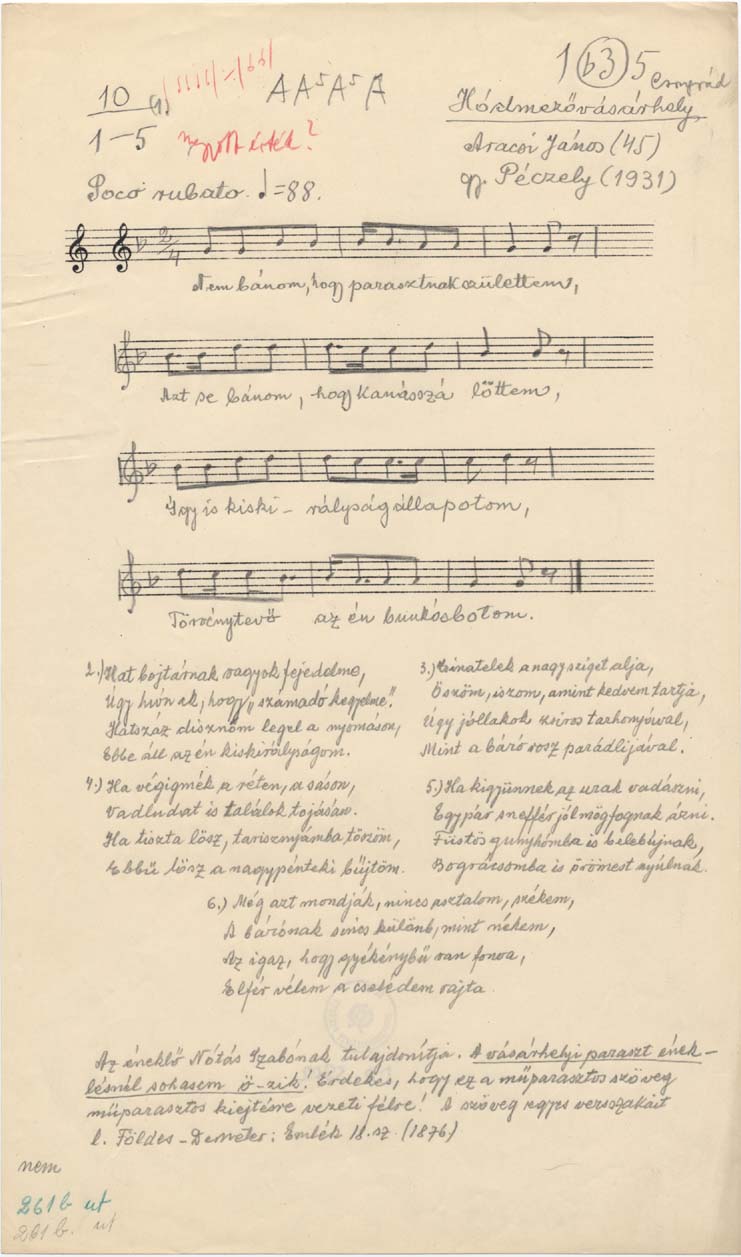 10
1 (b3) 5
Csongrád
A A⁵ A⁵ A
Hódmezővásárhely
1–5
Aracsi János (45)
Poco rubato. ♩=88.
gy. Péczely (1931)
2/4
Nem bánom, hogy parasztnak születtem,
Azt se bánom, hogy kanásszá löttem,
Így is kiski – rályság állapotom,
Törvénytevő az én bunkósbotom.
2.) Hat bojtárnak vagyok fejedelme,
Úgy hívnak, hogy „számadó kegyelme".
Hatszáz disznóm legel a nyomáson,
Ebbe áll az én kiskirályságom.
3.) Kinatelek a nagy sziget alja,
Öszöm, iszom, amint kedvem tartja,
Úgy jóllakok zsiros tarhonyával,
Mint a báró rosz parádlijával.
4.) Ha végigmék a réten, a sáson,
Vadludat is találok tojásán.
Ha tiszta lösz, tarisznyámba töszöm,
Ebbű lösz a nagypénteki bűjtöm.
5.) Ha kigyünnek az urak vadászni,
Egypár sneffér jól mögfognak ázni.
Füstös gunyhómba is belebújnak,
Bográcsomba is örömest nyúlnak.
6.) Még azt mondják, nincs asztalom, székem,
A bárónak sincs különb, mint nékem,
Az igaz, hogy gyékénybű van fonva,
Elfér vélem a cselédem rajta.
Az éneklő Nótás Szabónak tulajdonítja. A vásárhelyi paraszt ének-
lésnél sohasem ö-zik! Érdekes, hogy ez a műparasztos szöveg
műparasztos kiejtésre vezeti félre! A szöveg egyes versszakait
l. Földes – Demeter: Emlék 18. sz. (1876)
nem
261b ut
261b. ut